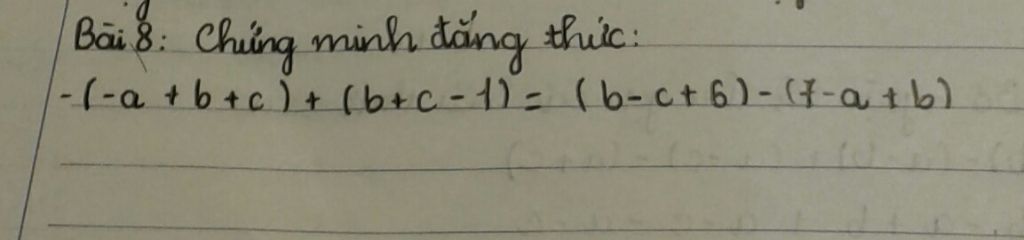 Bài 8: Chứng minh đẳng thức:
-(-a + b + c) + (b + c - 1) = (b - c + 6) - (7 - a + b)